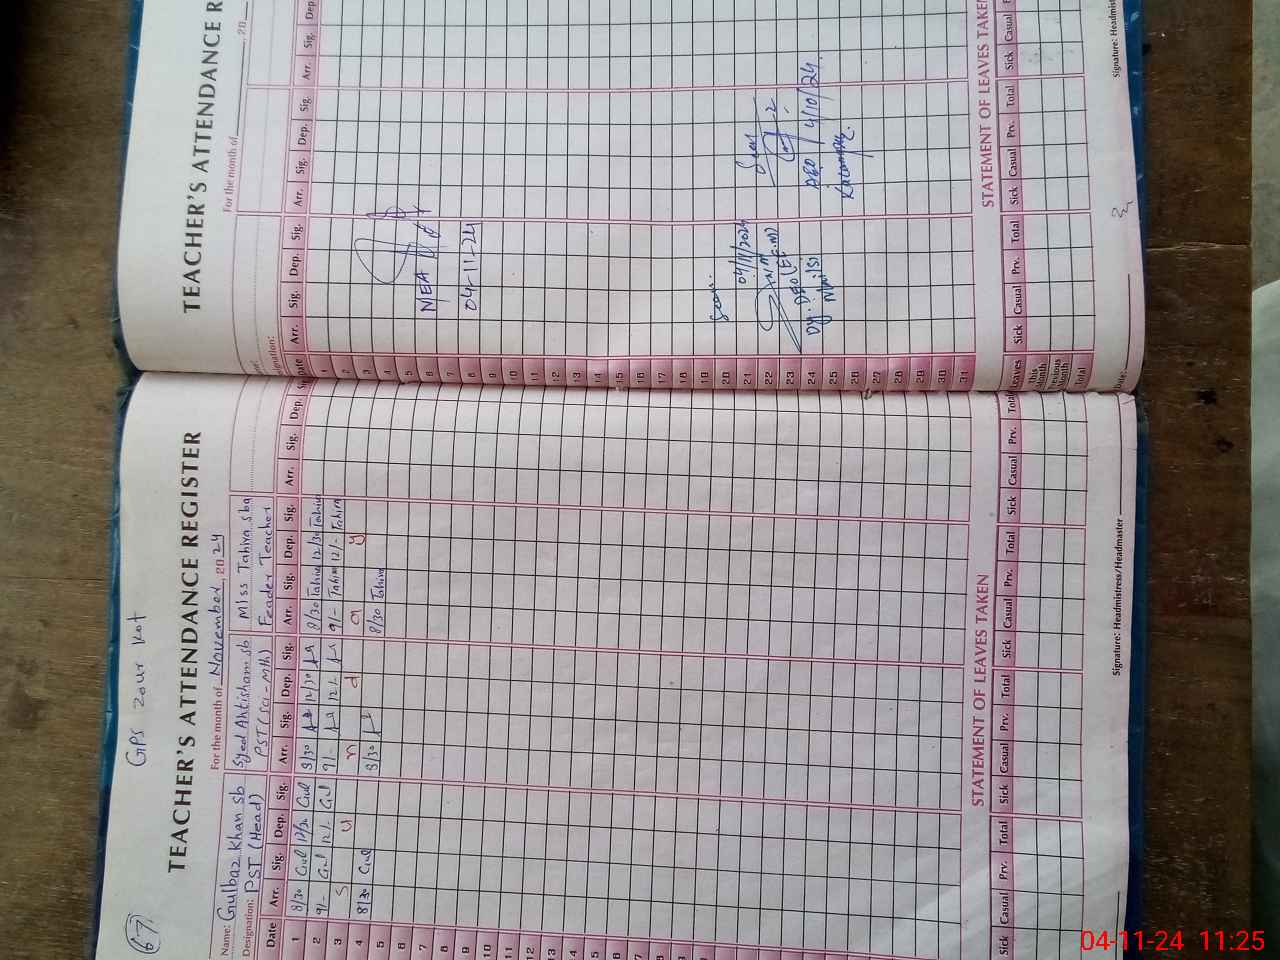 67
GPS Zour Kot
TEACHER'S ATTENDANCE REGISTER
For the month of November, 2024
Name: Gulbaz Khan sb Syed Ahtisham sb Miss Tahira sba
Designation: PST (Head) PST (Sci-Mth) Feader Teacher
Date Arr. Sig. Dep. Sig. Arr. Sig. Dep. Sig. Arr. Sig. Dep. Sig. Arr. Sig. Dep.
1 8/30 Gul 12/30 Gul 8/30 12/30 8/30 Tahira 12/30 Tahira
2 9/- Gul 12/- Gul 9/- 12/- 9/- Tahira 12/- Tahira
3 S u n d a y
4 8/30 Gul 8/30 8/30 Tahira
5
6
7
8
9
10
11
12
13
14
15
16
17
18
19
20
21
22
23
24
25
26
27
28
29
30
31
STATEMENT OF LEAVES TAKEN
Sick Casual Prv. Total Sick Casual Prv. Total Sick Casual Prv. Total Sick Casual Prv. Total
Signature: Headmistress/Headmaster
TEACHER'S ATTENDANCE R
For the month of , 20
Date Arr. Sig. Dep. Sig. Arr. Sig. Dep. Sig. Arr. Sig. Dep
1
2
3
4
5
6
7
8
9
10
11
12
13
14
15
16
17
18
19
20
21
22
23
24
25
26
27
28
29
30
31
MEA
04-11-24
Seen.
04/11/2024
Dy. DEO (EF.M)
Seen
4/10/24
STATEMENT OF LEAVES TAKEN
Leaves Sick Casual Prv. Total Sick Casual Prv. Total Sick Casual
This Month
Previous Month
Total
Date:
Signature: Headmis
04-11-24 11:25